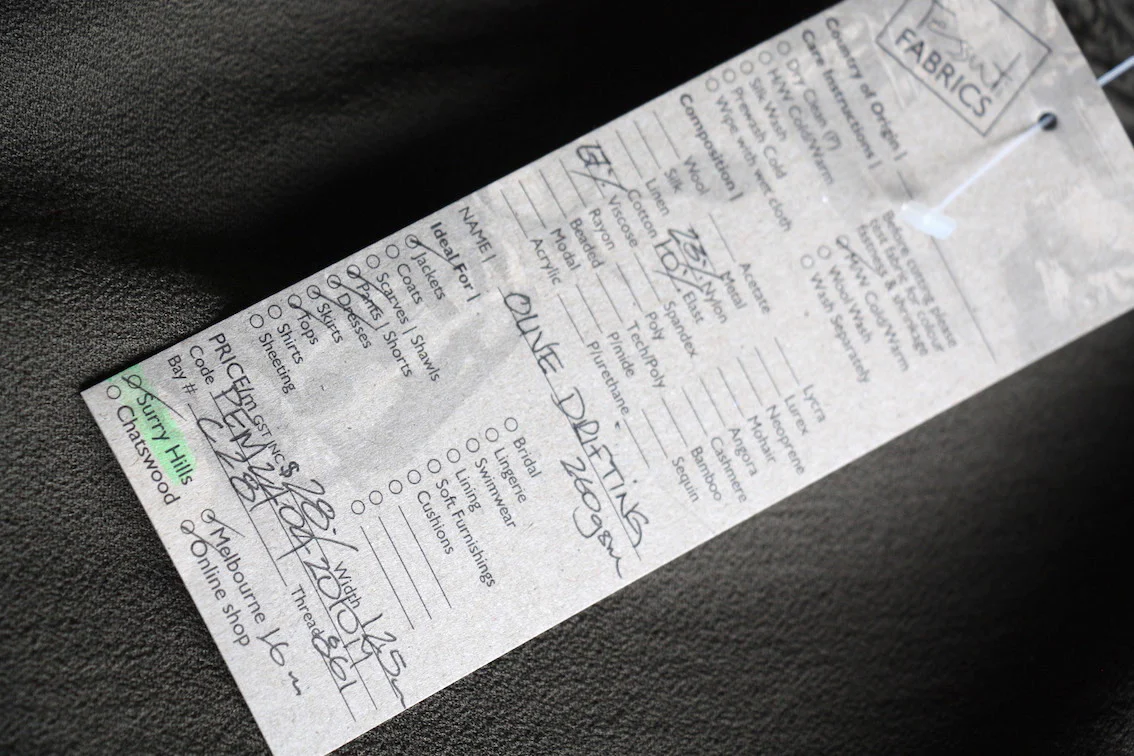 FABRICS
Country of Origin |
Care Instructions |
Before cutting please
test fabric for colour
fastness & shrinkage
Dry Clean (P)
H/W Cold/Warm
Silk Wash
Prewash Cold
Wipe with wet cloth
M/W Cold/Warm
Wool Wash
Wash Separately
Composition |
Wool
Silk
Linen
Cotton
67% Viscose
Rayon
Beaded
Modal
Acrylic
Acetate
Metal
23% Nylon
10% Elast
Spandex
Poly
Tech/Poly
P/mide
P/urethane
Lycra
Lurex
Neoprene
Mohair
Angora
Cashmere
Bamboo
Sequin
NAME | OLIVE DRIFTING
260gsm
Ideal For |
Jackets
Coats
Scarves | Shawls
Pants | Shorts
Dresses
Skirts
Tops
Shirts
Sheeting
Bridal
Lingerie
Swimwear
Lining
Soft Furnishings
Cushions
PRICE/m GST INC $ 28-/ Width
Code
Bay # Thread 861
Surry Hills
Chatswood
Melbourne 16m
Online shop